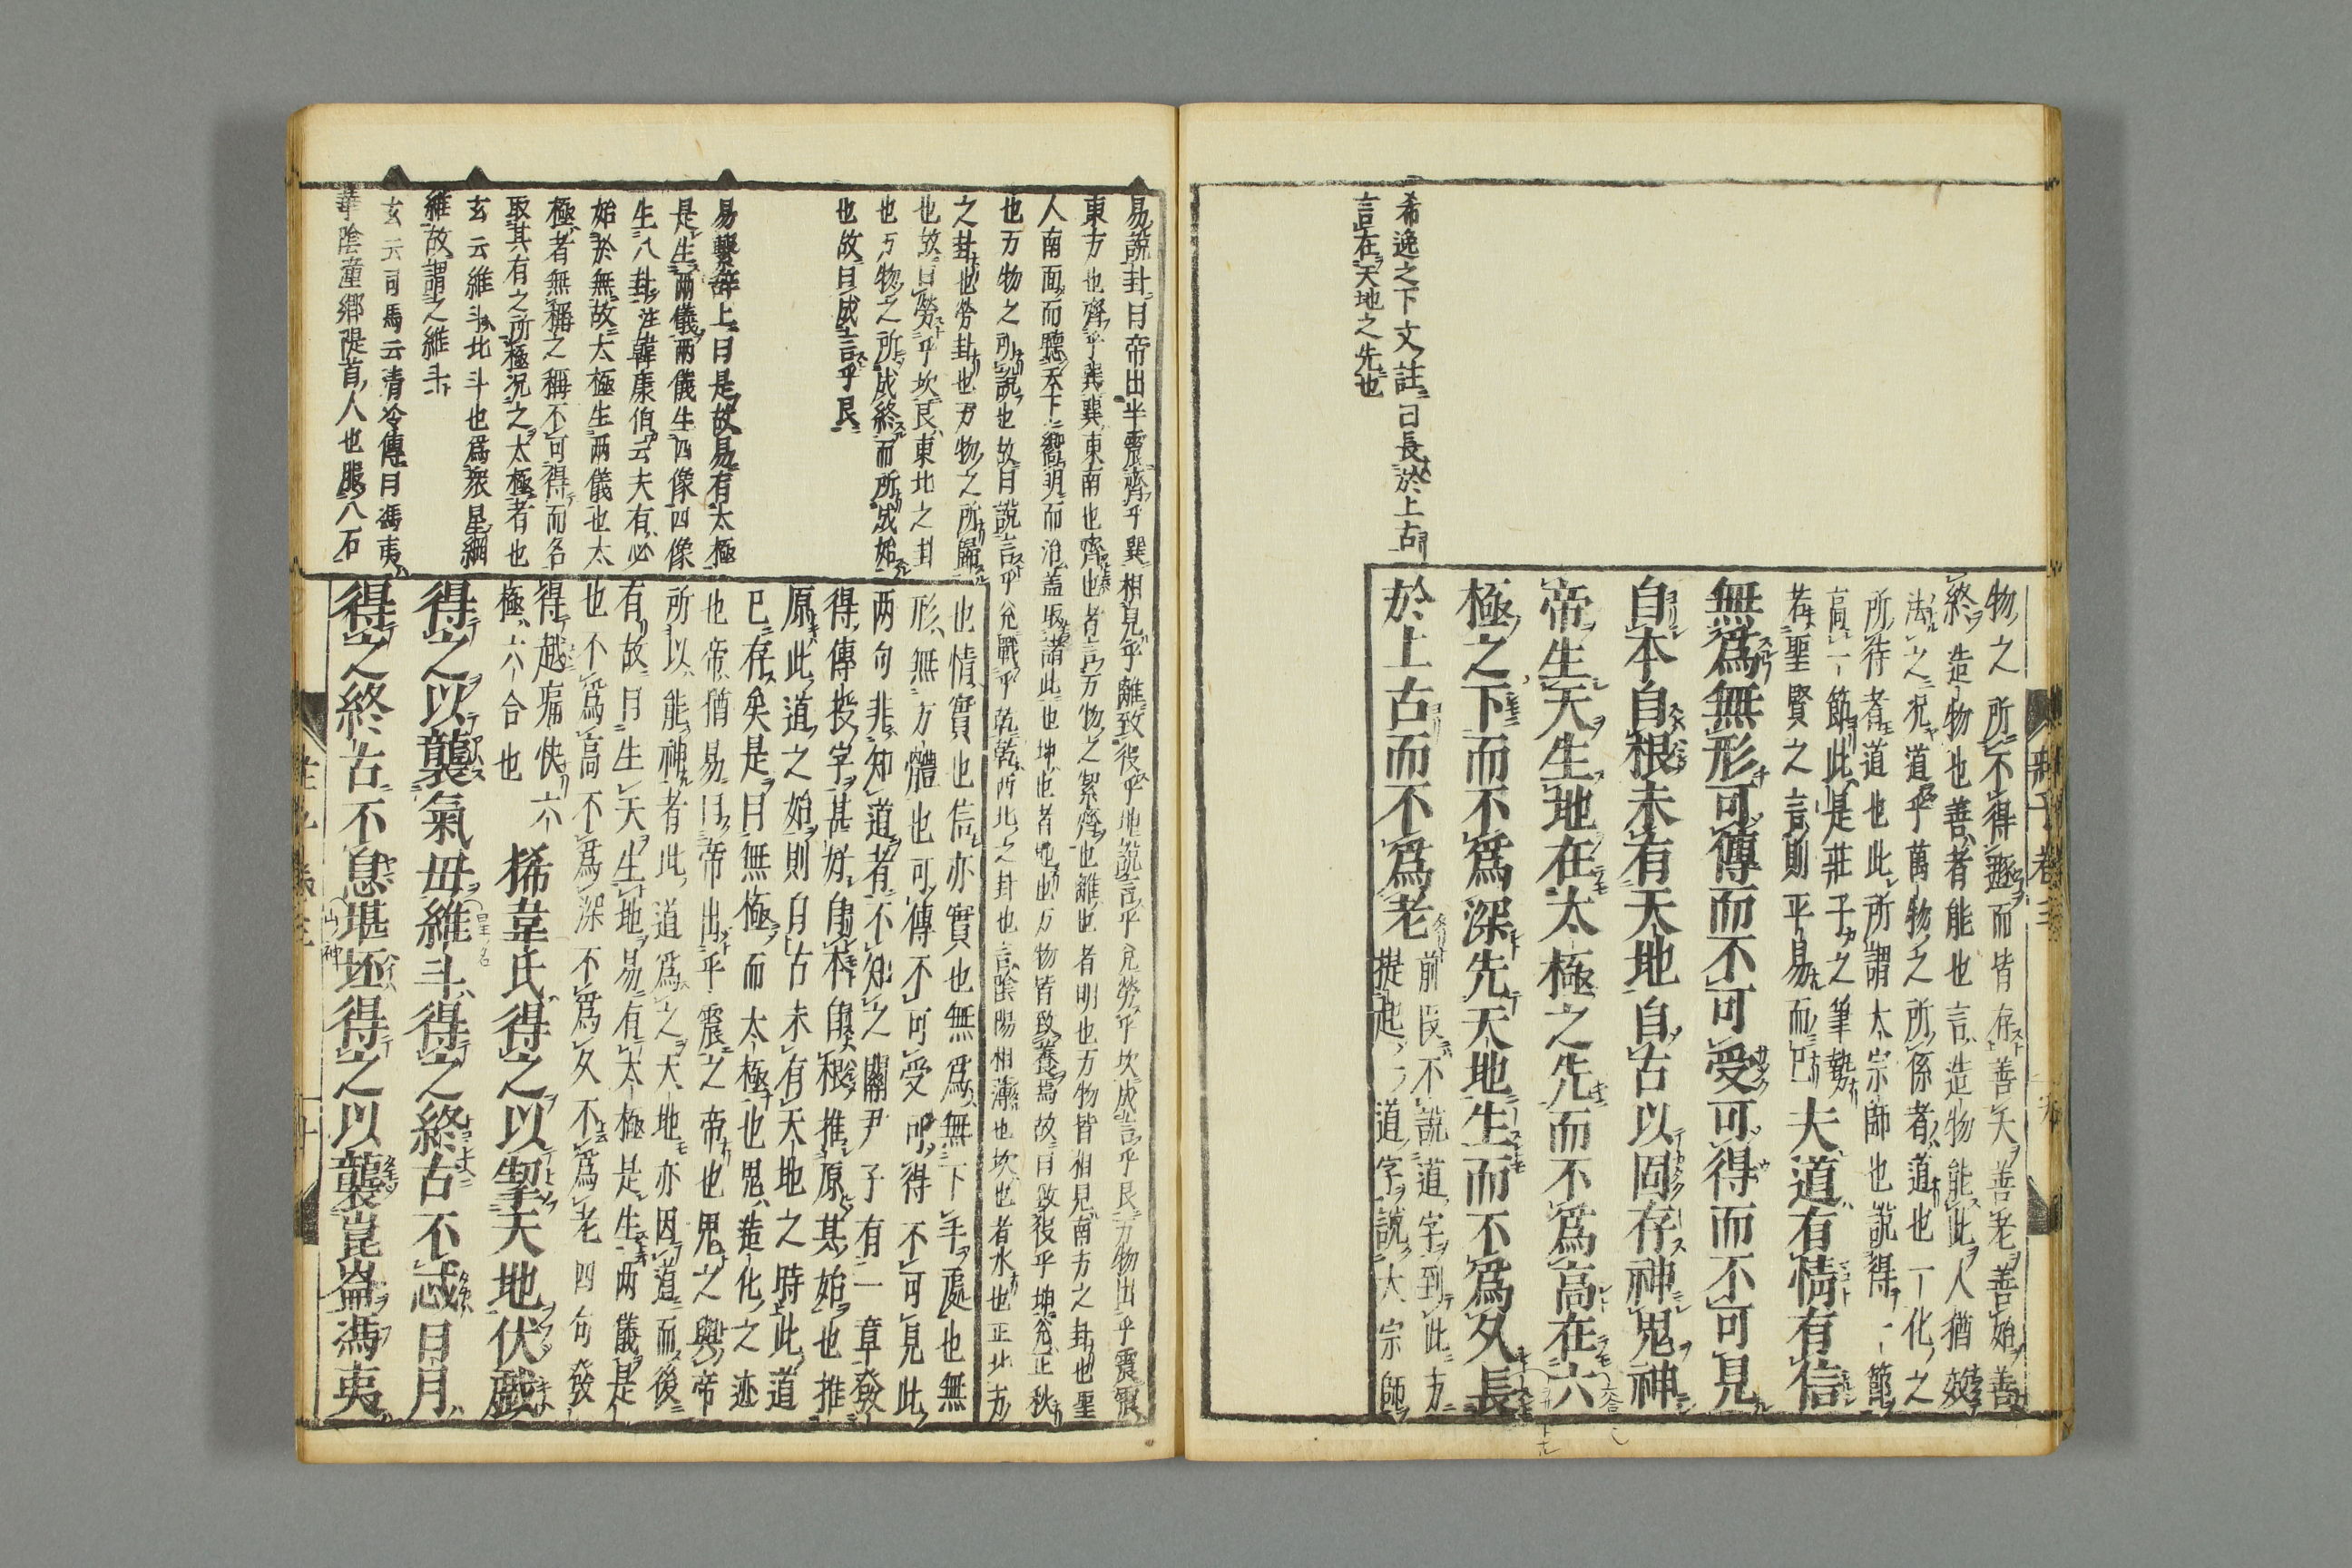 希逸之下文註曰長於上古
言在天地之先也
物之所不得遯而皆存善夭善老善始善
終造物也善者能也言造物能此人猶效
法之況道乎萬物之所係者道也一化之
所待者道也此所謂太宗師也說得一節
高一節此是莊子之筆勢
若聖賢之言則平易而已夫道有情有信
無爲無形可傳而不可受可得而不可見
自本自根未有天地自古以固存神鬼神
帝生天生地在太極之先而不爲高在六
極之下而不爲深先天地生而不爲久長
於上古而不爲老
前段不說道字到此方
提起一道字說大宗師
莊子卷三
易說卦曰帝出乎震齊乎巽相見乎離致役乎坤說言乎兌勞乎坎成言乎艮万物出乎震震
東方也齊乎巽巽東南也齊也者言万物之絜齊也離也者明也万物皆相見南方之卦也聖
人南面而聽天下嚮明而治蓋取諸此也坤也者地也万物皆致養焉故曰致役乎坤兌正秋
也万物之所說也故曰說言乎兌戰乎乾乾西北之卦也言陰陽相薄也坎也者水也正北方
之卦也勞卦也万物之所歸
也故曰勞乎坎艮東北之卦
也万物之所成終而所成始
也故曰成言乎艮
易繫辭上曰是故易有太極
是生兩儀兩儀生四像四像
生八卦註韓康伯云夫有必
始於無故太極生兩儀也太
極者無稱之稱不可得而名
取其有之所極況之太極者也
玄云維斗北斗也爲衆星綱
維故謂之維斗
玄云司馬云清冷傳曰馮夷
華陰潼鄉隄首人也服八石
也情實也信亦實也無爲無下手處也無
形無方體也可傳不可受可得不可見此
兩句非知道者不知之關尹子有一章發
得傳授字甚好自本自根推原其始也推
原此道之始則自古未有天地之時此道
已存矣是曰無極而太極也鬼造化之迹
也帝猶易曰帝出乎震之帝也鬼之與帝
所以能神者此道爲之天地亦因道而後
有故曰生天生地易有太極是生兩儀是
也不爲高不爲深不爲久不爲老四句發
得越痛快六
極六合也
狶韋氏得之以挈天地伏戲
得之以襲氣母維斗得之終古不忒日月
得之終古不息堪坏得之以襲崑崙馮夷
星名
山神